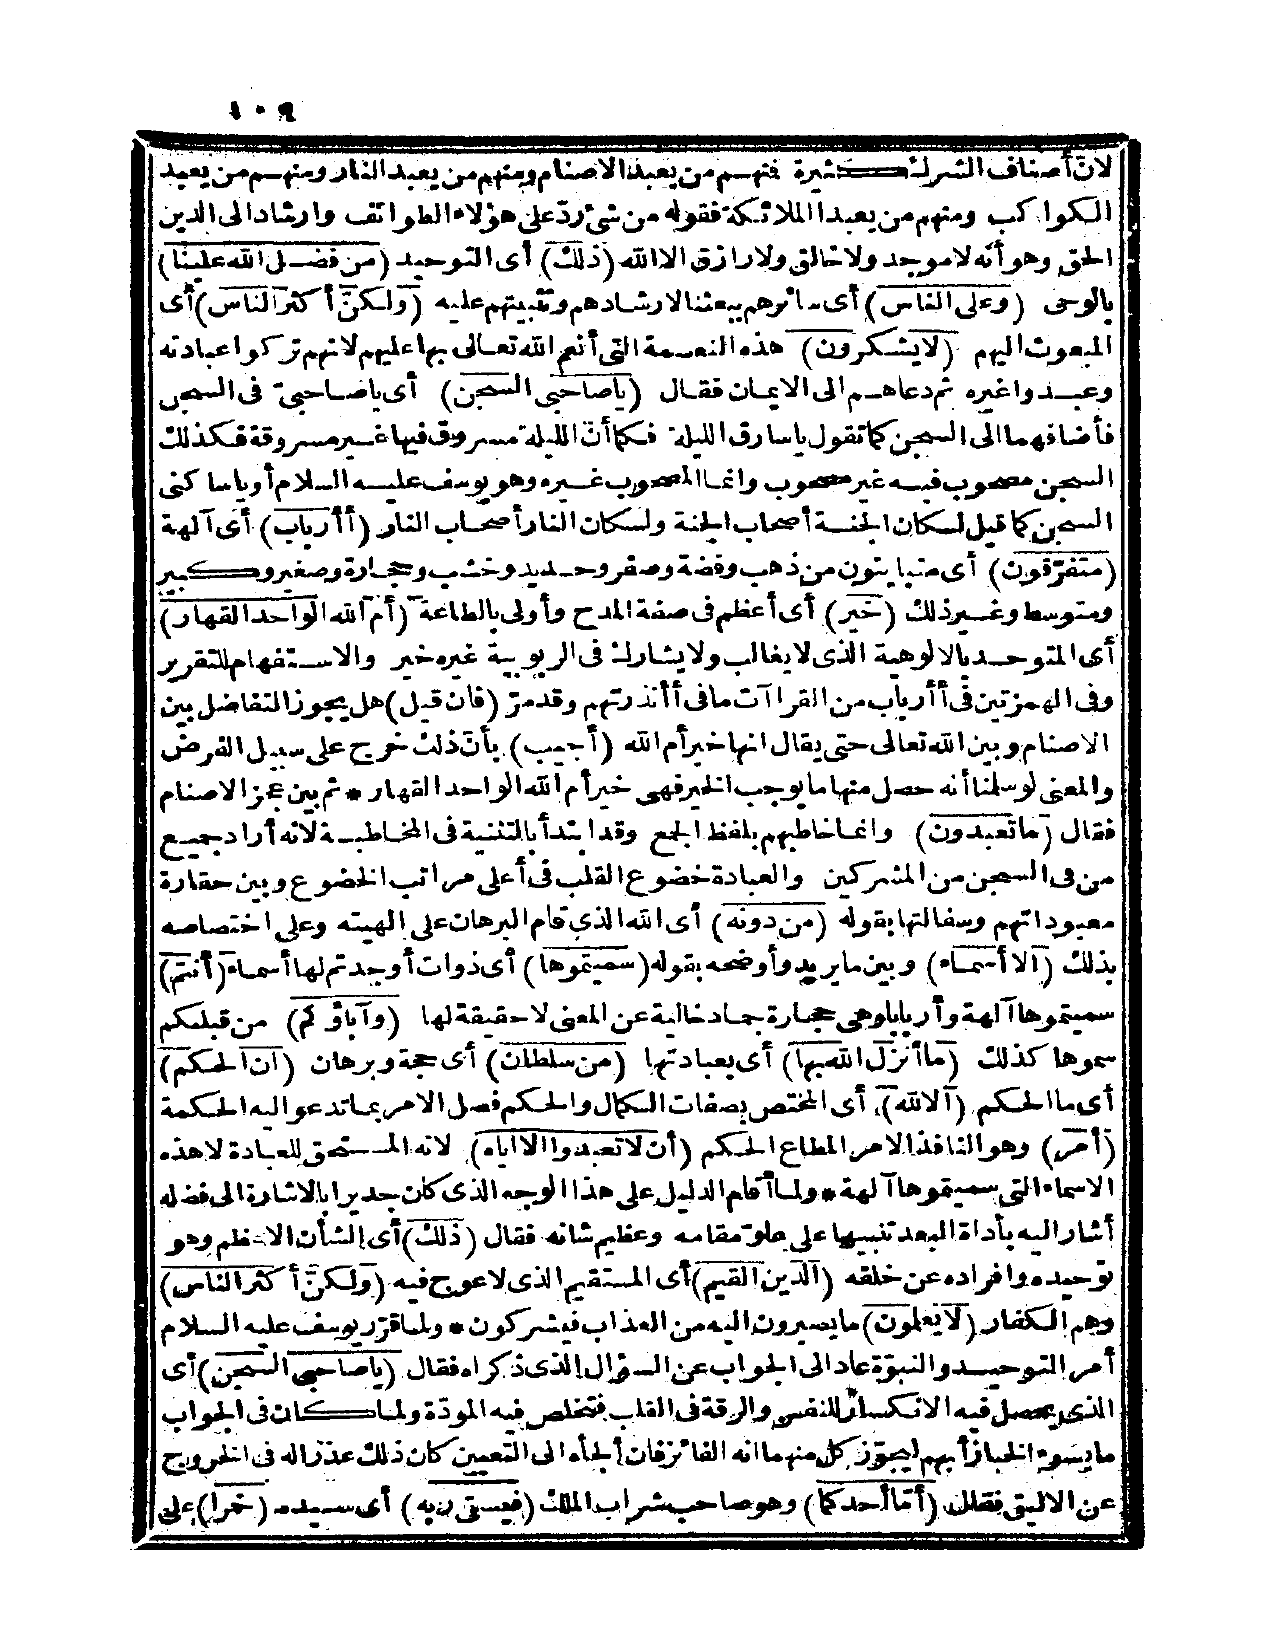 ١٠٩
لانّ أصناف الشرك كثيرة فمنهم من يعبد الاصنام ومنهم من يعبد النار ومنهم من يعبد
الكواكب ومنهم من يعبد الملائكة فقوله من شئ ردّ على هؤلاء الطوائف وارشاد الى الدين
الحق وهو أنه لا موجد ولا خالق ولا رازق الا الله (ذلك) أى التوحيد (من فضل الله علينا)
بالوحى (وعلى الناس) أى سائرهم ببعثنا لارشادهم وتثبيتهم عليه (ولكنّ أكثر الناس) أى
المبعوث اليهم (لا يشكرون) هذه النعمة التى أنعم الله تعالى بها عليهم لانهم تركوا عبادته
وعبدوا غيره ثم دعاهم الى الايمان فقال (يا صاحبى السجن) أى يا صاحبىّ فى السجن
فأضافهما الى السجن كما تقول يا سارق الليلة فكما أنّ الليلة مسروق فيها غير مسروقة فكذلك
السجن مصحوب فيه غير مصحوب وانما المصحوب غيره وهو يوسف عليه السلام أو يا ساكنى
السجن كما قيل لسكان الجنة أصحاب الجنة ولسكان النار أصحاب النار (أأرباب) أى آلهة
(متفرّقون) أى متباينون من ذهب وفضة وصفر وحديد وخشب وحجارة وصغير وكبير
ومتوسط وغير ذلك (خير) أى أعظم فى صفة المدح وأولى بالطاعة (أم الله الواحد القهار)
أى المتوحد بالالوهية الذى لا يغالب ولا يشارك فى الربوبية غيره خير والاستفهام للتقرير
وفى الهمزتين فى أأرباب من القراآت ما فى أأنذرتهم وقد مرّ (فان قيل) هل يجوز التفاضل بين
الاصنام وبين الله تعالى حتى يقال انها خير أم الله (أجيب) بأنّ ذلك خرج على سبيل الفرض
والمعنى لو سلمنا أنه حصل منها ما يوجب الخير فهى خير أم الله الواحد القهار * ثم بين عجز الاصنام
فقال (ما تعبدون) وانما خاطبهم بلفظ الجمع وقد ابتدأ بالتثنية فى المخاطبة لانه أراد جميع
من فى السجن من المشركين والعبادة خضوع القلب فى أعلى مراتب الخضوع وبين حقارة
معبوداتهم وسفالتها بقوله (من دونه) أى الله الذى قام البرهان على الهيته وعلى اختصاصه
بذلك (الا أسماء) وبين ما يريد وأوضحه بقوله (سميتموها) أى ذوات أوجدتم لها أسماء (أنتم)
سميتموها آلهة وأربابا وهى حجارة جماد خالية عن المعنى لا حقيقة لها (وآباؤكم) من قبلكم
سموها كذلك (ما أنزل الله بها) أى بعبادتها (من سلطان) أى حجة وبرهان (ان الحكم)
أى ما الحكم (الا لله) أى المختص بصفات الكمال والحكم فصل الامر بما تدعو اليه الحكمة
(أمر) وهو النافذ الامر المطاع الحكم (أن لا تعبدوا الا اياه) لانه المستحق للعبادة لا هذه
الاسماء التى سميتموها آلهة * ولما أقام الدليل على هذا الوجه الذى كان جديرا بالاشارة الى فضله
أشار اليه بأداة البعد تنبيها على علوّ مقامه وعظيم شانه فقال (ذلك) أى الشأن الاعظم وهو
توحيده وافراده عن خلقه (الدين القيم) أى المستقيم الذى لا عوج فيه (ولكنّ أكثر الناس)
وهم الكفار (لا يعلمون) ما يصيرون اليه من العذاب فيشركون * ولما قرّر يوسف عليه السلام
أمر التوحيد والنبوّة عاد الى الجواب عن السؤال الذى ذكراه فقال (يا صاحبى السجن) أى
الذى يحصل فيه الانكسار للنفس والرقة فى القلب فتخلص فيه المودة ولما كان فى الجواب
ما يسوء الخباز أبهم ليجوّز كل منهما انه الفائز فان ألجأه الى التعيين كان ذلك عذرا له فى الخروج
عن الاليق فقال (أمّا أحدكما) وهو صاحب شراب الملك (فيسقى ربه) أى سيده (خمرا) على